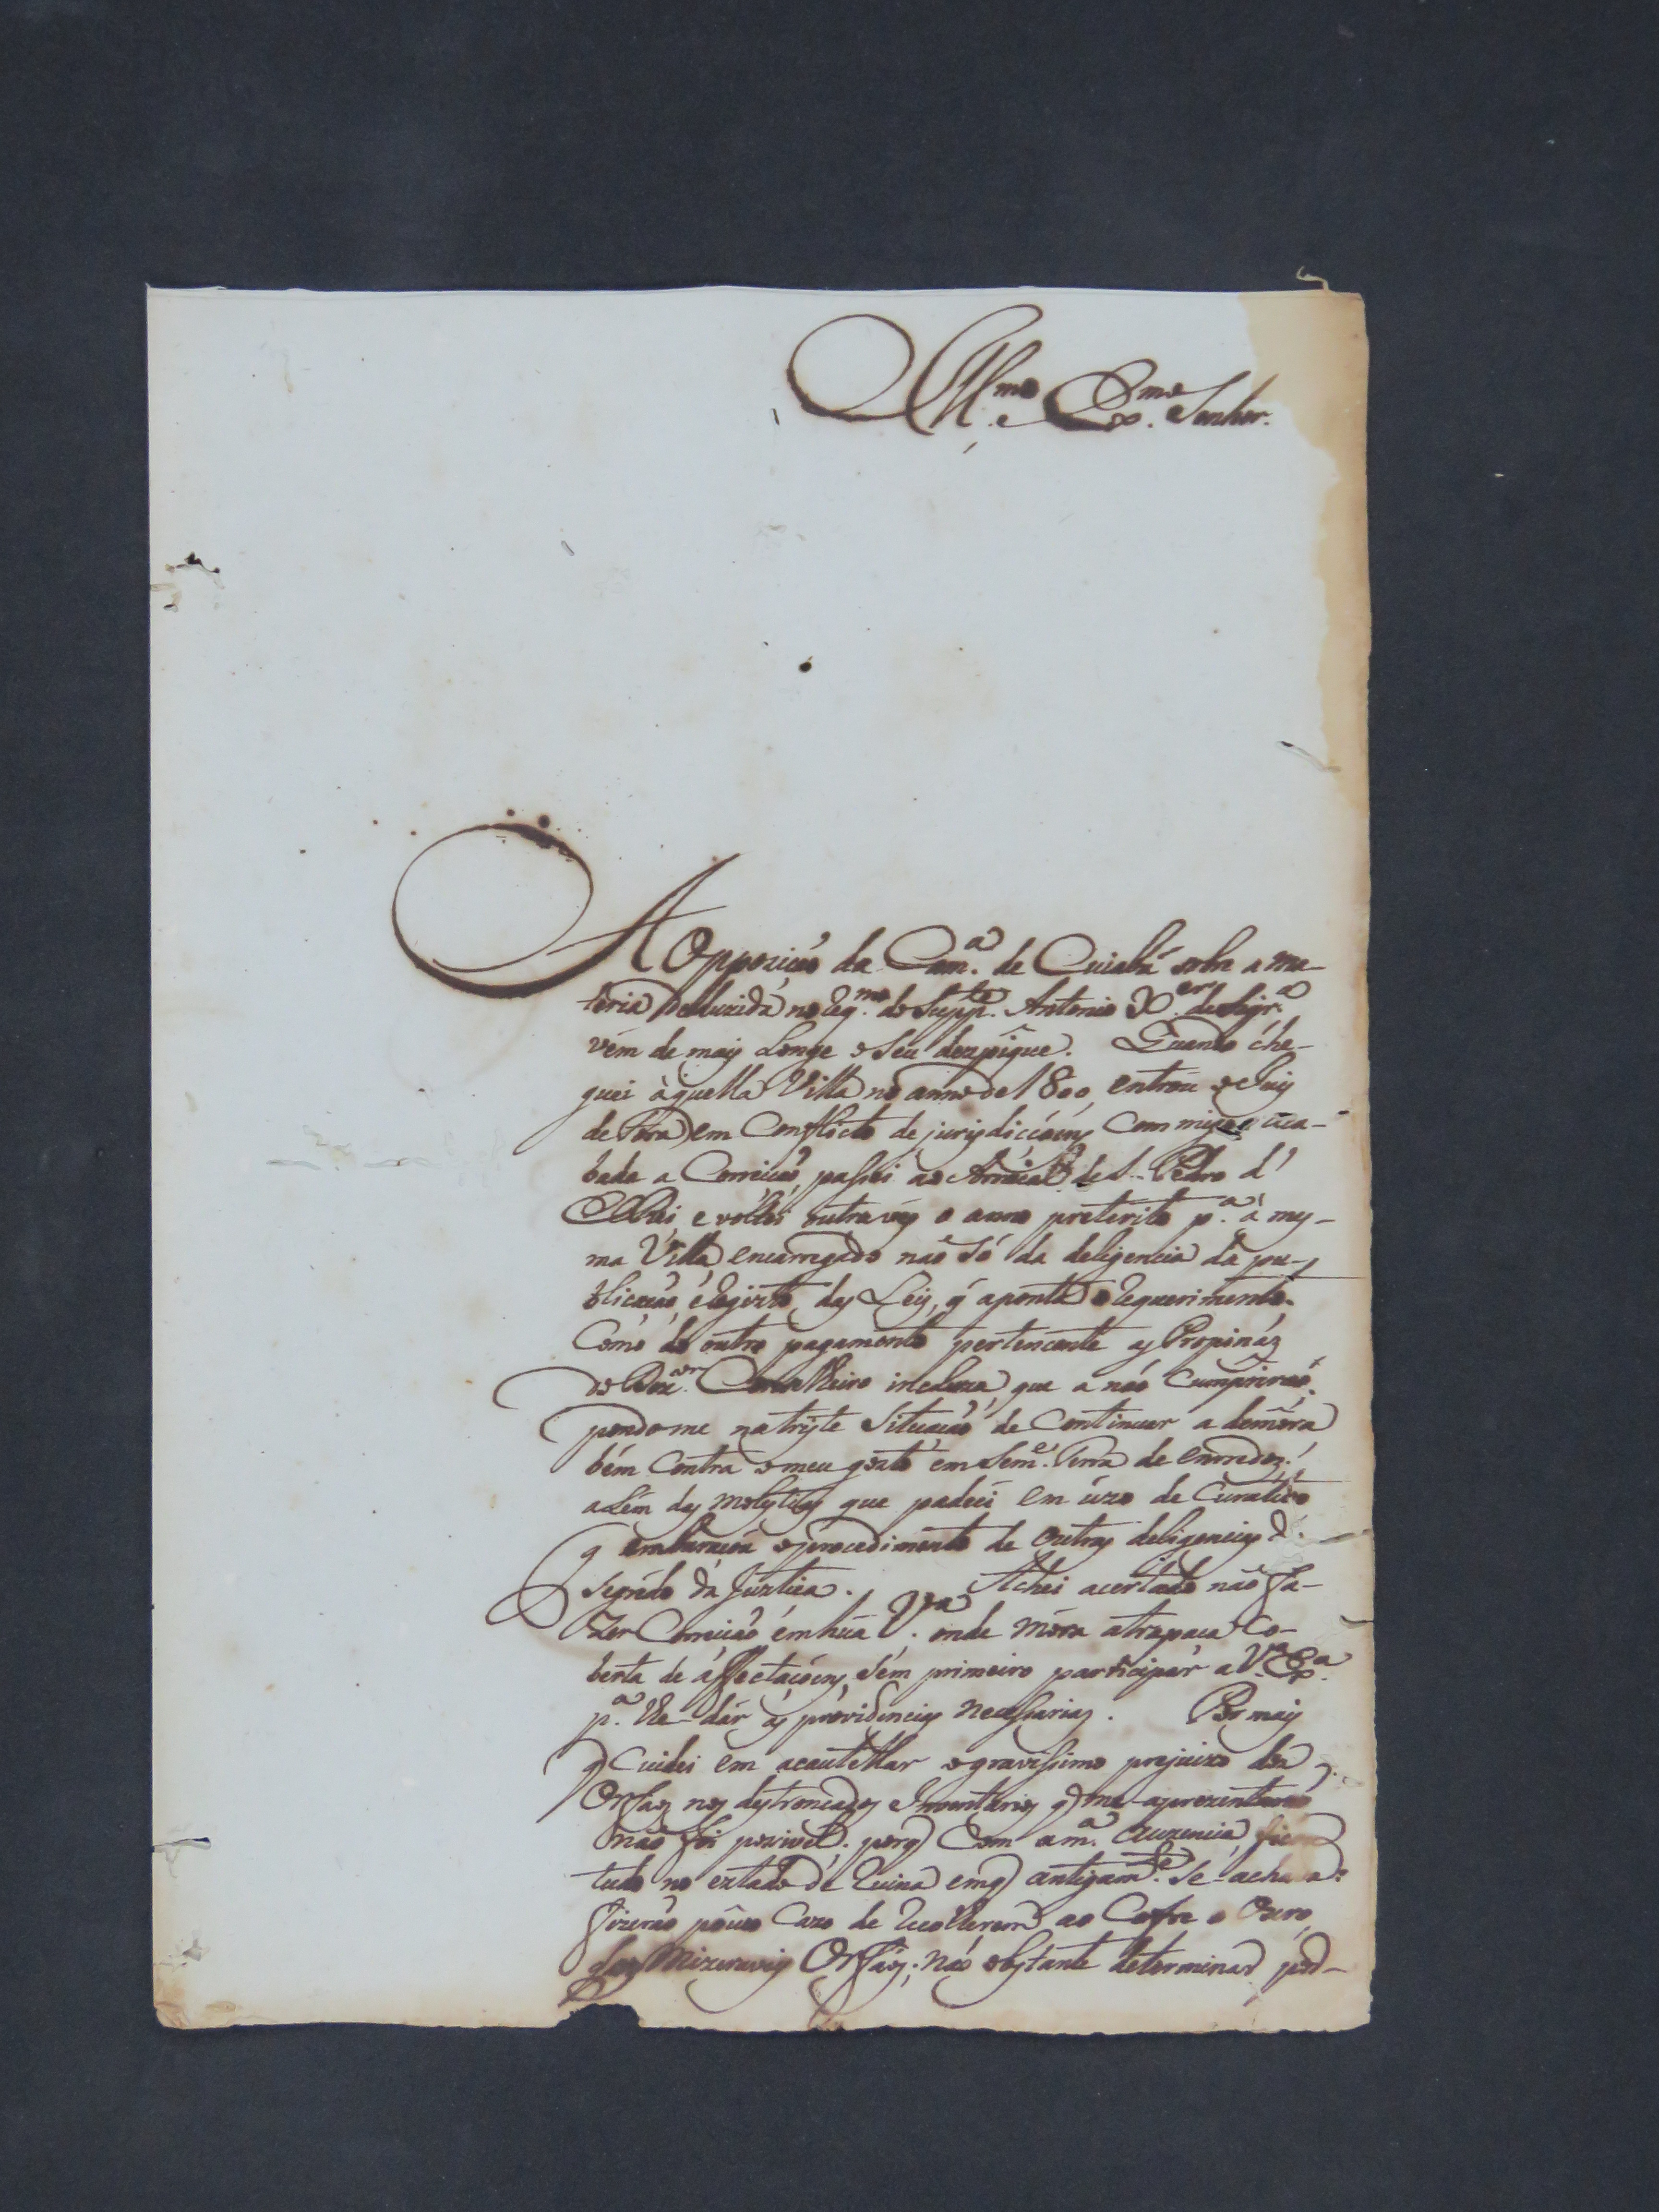 Ill.mo e Ex.mo Senhor.
A Oppozicaõ da Cam.a de Cuiabá sobre a ma-
teria deduzida no Req.mo do Supp.te Antonio X.er de Siqr.a
vém de mais Longe o Seu dezpique. Quando che-
guei àquella Villa no anno de 1800, entrou o Juis
de Fóra em Conflicto de jurisdiccoẽns Commigo: aca-
bada a Correicaõ, passei ao Arraial de S. Pedro d'
ElRei, e voltei outra vês o anno preterito p.a a mes-
ma Villa, encarregado naõ Só da deligencia da pu-
blicacaõ, e Regizto das Leis, q̃ aponta o Requerimento.
Como de outro pagamento pertencente as Propinaz
do Dez.or Conselheiro incluza, que a não Cumpriraõ:
pondo me na triste Situacaõ de Continuar a demora
bém Contra o meu gosto em Sem.e Terra de enredoz:
aLém das molestias que padeci em úzo de Curativo
q embaracou o procedimento de outras deligencias d.
Segredo da Justica. Achei acertado naõ fa-
zer Correicaõ em húa V.a onde móra a trapaca Co-
berta de affectacoẽns, Sém primeiro participár a V.a Ex.a
p.a lhe-dár as providencias necessarias. Por mais
q Cuidei em acautellar o gravissimo prejuizo doz
Orfaoz nos destroncados Inventarios q me-aprezentaraõ
naõ foi pozivel; porq Com a m.a auzencia, ficou
tudo no estado de Ruina emq antigam.te Se-achava:
fizeraõ pouco Cazo de Recolherem ao Cofre o Ouro
dos Mizeraveis Orfaõs; não obstante determinar por-